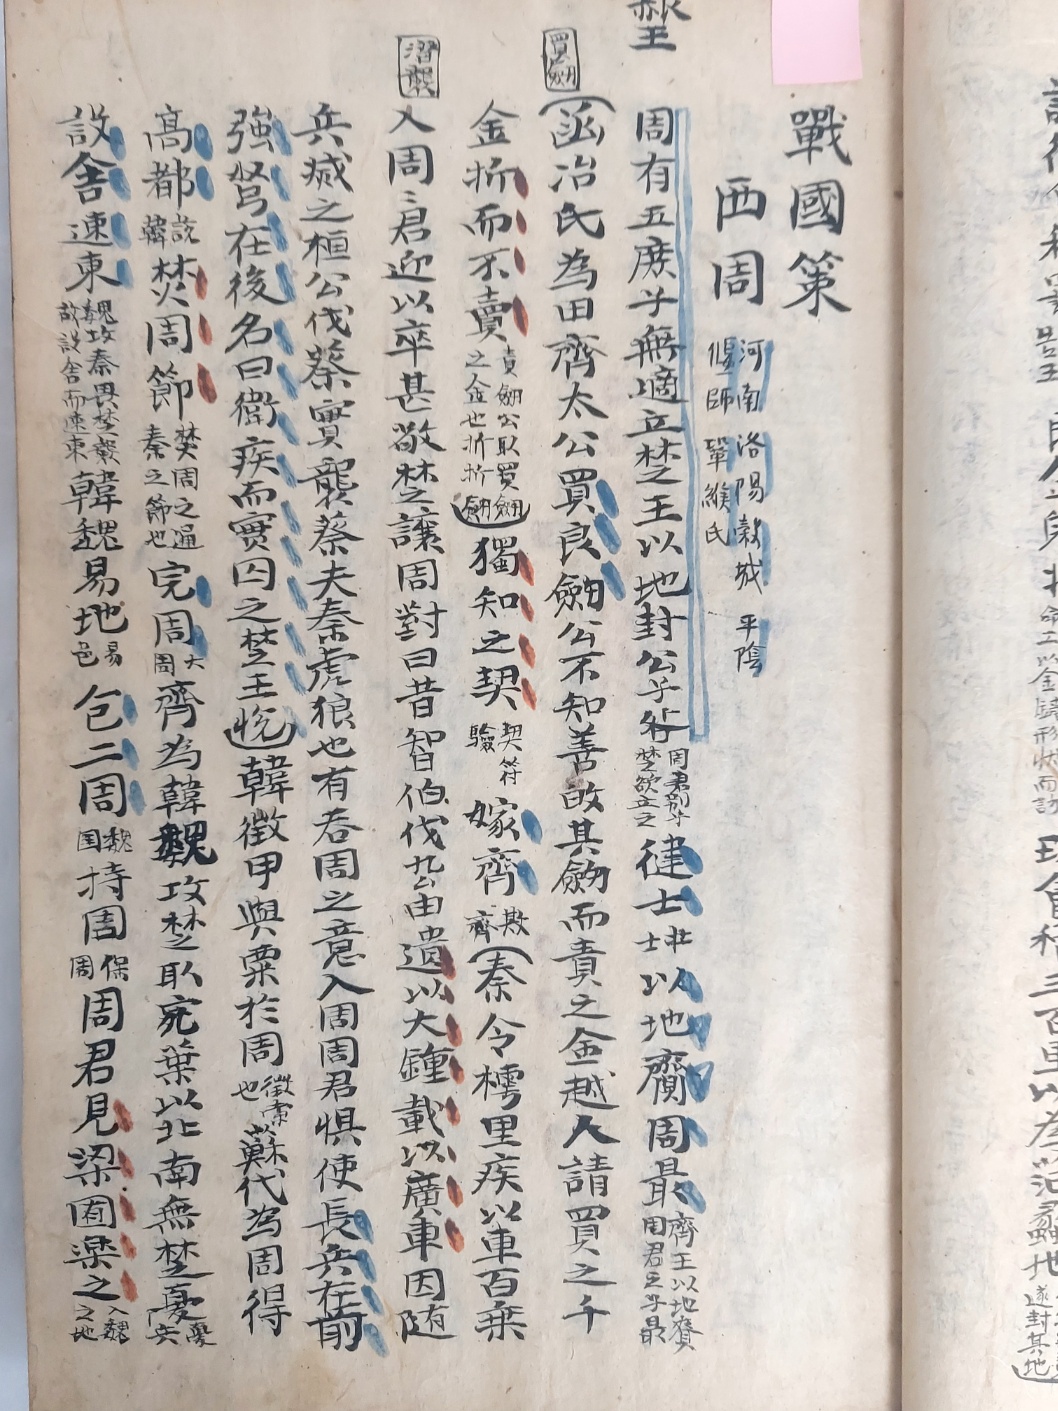 戰國策
西周 河南 洛陽 穀城 平陰 偃師 鞏 緱氏
周有五庶子無適立楚王以地封公子咎 周君別子楚欲立之 健士 壮士 以地賷周最 齊王以地賷周君之子最
函冶氏為田齊太公買良劒公不知善故其劒而責之金越人請買之千
金折而不賣 責劒公取買劒之金也折折劒 獨知之契 契符驗 嫁齊 欺齊 秦令樗里疾以車百乗
入周〻君迎以卒甚敬楚之讓周對曰昔智伯伐厹由遺以大鍾載以廣車因随
兵威之桓公伐蔡實襲蔡夫秦虎狼也有吞周之意入周周君惧使長兵在前
強弩在後名曰衛疾而實囚之楚王悦韓徵甲與粟於周 徵索也 蘓代為周得
高都 說韓 焚周節 焚周之通秦之節也 完周 大周 齊為韓魏攻楚取宛葉以北南無楚憂
設舎速東 魏攻秦畏楚救設舎而速東 韓魏易地 易邑 包二周 魏国 持周 保周 周君見梁囿樂之 入魏之地
買劒
習襲